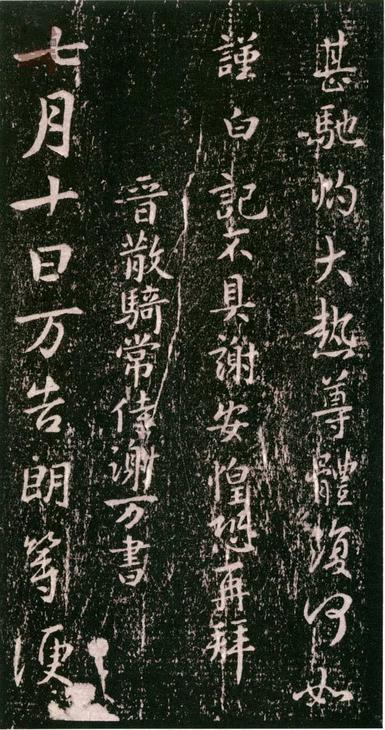 甚馳灼大熱尊體復何如
謹白記不具謝安惶恐再拜
晉散騎常侍謝万書
七月十日万告朗等便